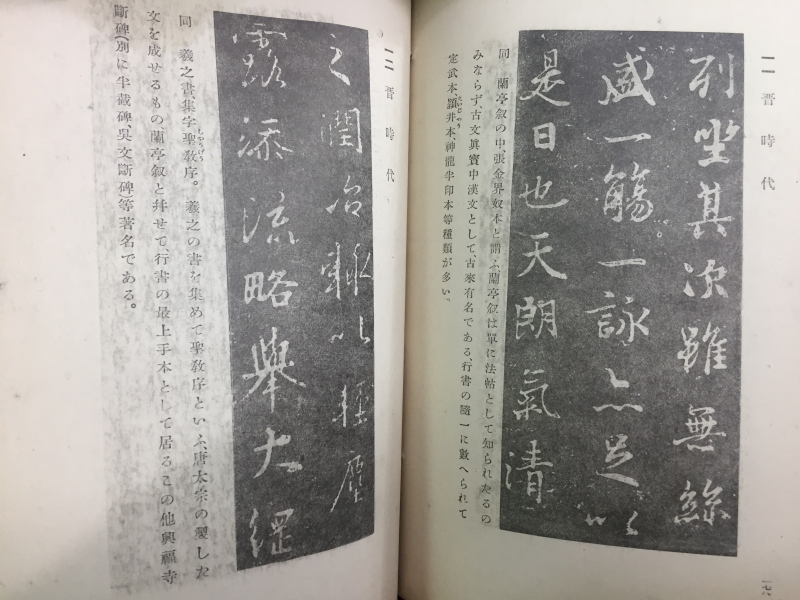 一一 晋時代
列坐其次雖無絲
盛一觴一詠亦足以
是日也天朗氣清
同 蘭亭叙の中、張金界奴本と謂ふ、蘭亭叙は單に法帖として知られたるの
みならず、古文眞寳中漢文として、古來有名である、行書の隨一に數へられて
定武本、頴井本、神龍半印本等種類が多い。
一一 晋時代
之潤冶輒以輕塵
露添流略舉大綱
同 羲之書集字聖敎序。羲之の書を集めて聖敎序といふ、唐太宗の製した
文を成せるもの蘭亭叙と幷せて、行書の最上手本として居る、この他興福寺
斷碑(別に半截碑、吳文斷碑)等著名である。